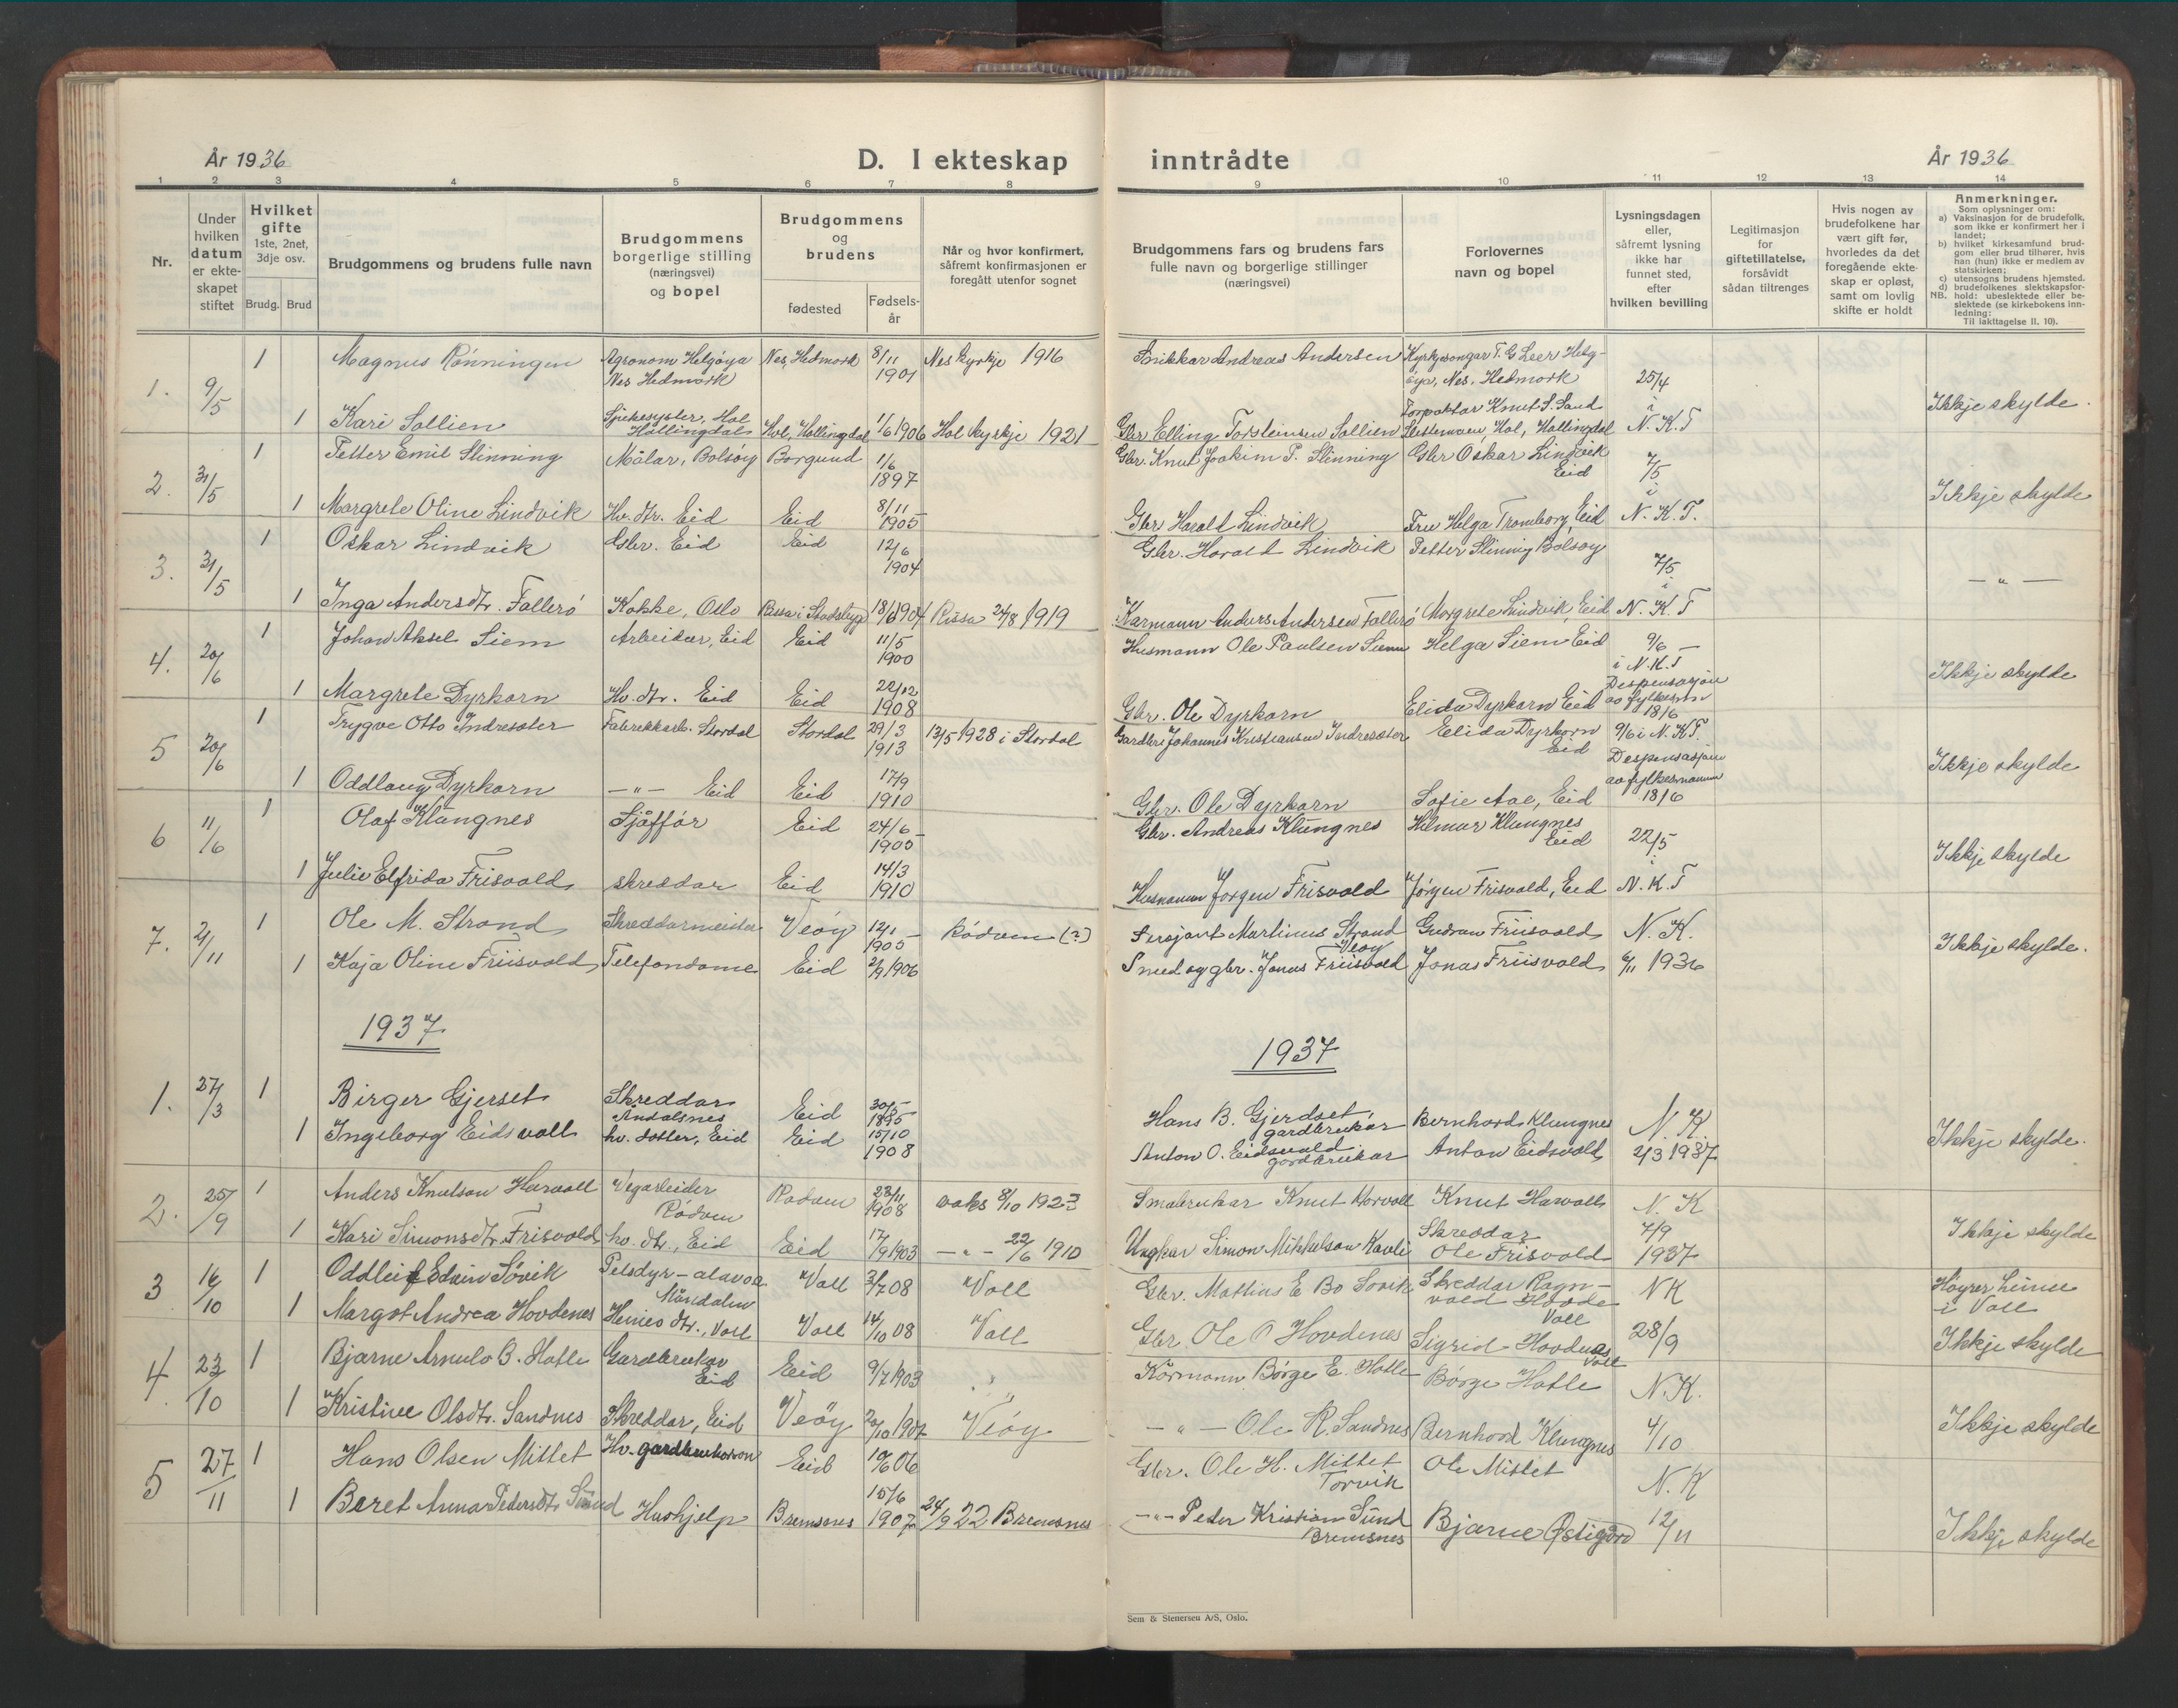 År 1936
D. I ekteskap inntrådte
År 1936
1 2 3 4 5 6 7 8 9 10 11 12 13 14
Nr.
Under hvilken datum er ekteskapet stiftet
Hvilket gifte 1ste, 2net, 3dje osv.
Brudg. Brud
Brudgommens og brudens fulle navn
Brudgommens borgerlige stilling (næringsvei) og bopel
Brudgommens og brudens
fødested
Fødselsår
Når og hvor konfirmert, såfremt konfirmasjonen er foregått utenfor sognet
Brudgommens fars og brudens fars fulle navn og borgerlige stillinger (næringsvei)
Forlovernes navn og bopel
Lysningsdagen eller, såfremt lysning ikke har funnet sted, efter hvilken bevilling
Legitimasjon for giftetillatelse, forsåvidt sådan tiltrenges
Hvis nogen av brudefolkene har vært gift før, hvorledes da det foregående ekteskap er opløst, samt om lovlig skifte er holdt
Anmerkninger.
Som oplysninger om:
a) Vaksinasjon for de brudefolk, som ikke er konfirmert her i landet;
b) hvilket kirkesamfund brudgom eller brud tilhører, hvis han (hun) ikke er medlem av statskirken;
c) utensogns brudens hjemsted.
d) brudefolkenes slektskapsforhold: ubeslektede eller beslektede (se kirkebokens innledning:
NB.
Til iakttagelse II. 10).
1. 9/5 1 Magnus Rønningen Agronom Helgøya Nes Hedmork Nes, Hedmork 8/11 1901 Nes kyrkje 1916 Snikkar Andreas Andersen Kyrkjesongar T. G. Leer Helgøya, Nes, Hedmork 25/4 i N.K.T Ikkje skylde.
1 Kari Sollien Sjukesyster, Hol Hallingdal Hol, Hallingdal 1/6 1906 Hol kyrkje 1921 Gbr Elling Torsteinsen Sollien Forpaktar Knut S. Sand Hol, Hallingdal
2. 31/5 1 Petter Emil Slinning Målar, Bolsøy Borgund 1/6 1897 Gbr. Knut Joakim P. Slinning Gbr Oskar Lindvik Eid 7/5 i N. K. T. Ikkje skylde
1 Margrete Oline Lindvik Hv. dtr. Eid Eid 8/11 1905 Gbr Harald Lindvik Fru Helga Tromborg, Eid
3. 31/5 1 Oskar Lindvik Gbr. Eid Eid 12/6 1904 Gbr. Harald Lindvik Petter Slinning Bolsøy 7/5 i N. K. T — " —
1 Inga Andersdtr. Fallerø Kokke, Oslo Rissa i Stadsbygd 18/6 1904 Rissa 24/8 1919 Kårmann Anders Andersen Fallerø Margrete Lindvik, Eid
4. 20/6 1 Johan Aksel Siem Arbeidar, Eid Eid 11/5 1900 Husmann Ole Paulsen Siem Helga Siem Eid 9/6 — i N.K.T Despensasjon av fylkesm 18/6 Ikkje skylde
1 Margrete Dyrkorn Hv. dtr. Eid Eid 22/12 1908 Gbr. Ole Dyrkorn Elida Dyrkorn Eid
5 20/6 1 Trygve Otto Indresæter Fabrekkarb. Stordal Stordal 29/3 1913 13/5 1928 i Stordal Gardbr. Johannes Kristiansen Indresæter Elida Dyrkorn Eid 9/6 i N.K.T. Despensasjon av fylkesmann 18/6 Ikkje skylde
1 Oddlaug Dyrkorn — " — Eid Eid 17/9 1910 Gbr. Ole Dyrkorn Sofie Aae, Eid
6 11/6 1 Olaf Klungnes Sjåffør Eid 24/6 1905 Gbr. Andreas Klungnes Hilmar Klungnes Eid 22/5 i N.K.T Ikkje skylde
1 Julie Elfrida Frisvold skreddar Eid 14/3 1910 Husmann Jørgen Frisvold Jørgen Frisvold, Eid
7. 21/11 1 Ole M. Strand Skreddarmeister Veøy 12/1 1905 Rødven (?) Sersjant Martinus Strand Veøy Gudrun Friisvold N. K. 6/11 1936 Ikkje skylde.
1 Kaja Oline Friisvold Telefondame Eid 2/9 1906 Smed og gbr. Jonas Friisvold Jonas Friisvold
1937 1937
1. 27/3 1 Birger Gjerset Skreddar Åndalsnes Eid 30/5 1895 Hans B. Gjerdset, gardbrukar Bernhard Klungnes N. K. 2/3 1937 Ikkje skylde.
1 Ingeborg Eidsvoll hv. dotter, Eid Eid 15/10 1908 Anton O. Eidsvold gardbrukar Anton Eidsvold
2. 25/9 1 Anders Knutson Harvoll Vegarbeider Rødven Rødven 23/11 1908 vaks 8/10 1923 Småbrukar Knut Horvoll Knut Harvoll N. K 7/9 1937 Ikkje skylde
1 Kari Simonsdtr. Frisvold hv. dtr., Eid Eid 17/9 1903 — " — 22/6 1910 Ungkar Simon Mikkelson Kavli Skreddar Ole Frisvold
3 16/10 1 Oddleif Edvin Søvik Pelsdyr-alavar Måndalen Voll 3/7 08 Voll Gbr. Mattius E Bø Søvik Skreddar Ragnvald Hovde Voll NK 28/9 Høyrer heime i Voll
1 Margot Andrea Hovdenes Heime dtr., Voll Voll 14/10 08 Voll Gbr Ole O Hovdenes Sigrid Hovdenes Voll Ikkje skylde
4. 23/10 1 Bjarne Arnulo B. Hatle Gardbrukar Eid Eid 9/7 1903 " Kårmann Børge E. Hatle Børge Hatle N.K. 4/10
1 Kristine Olsdtr. Sandnes Skreddar, Eid Veøy 20/10 1907 Veøy — " — Ole R. Sandnes Bernhard Klungnes Ikkje skylde
5 27/11 1 Hans Olsen Mittet Hv. gardbrukarson Eid 10/6 06 Gbr. Ole H. Mittet Torvik Ole Mittet N. K 12/11
1 Beret Anna Pedersdtr Sund Hushjelp Bremsnes 15/6 1907 24/9 22 Bremsnes — " — Peder Kristian Sund Bremsnes Bjarne Østigård Ikkje skylde
Sem & Stenersen A/S, Oslo.